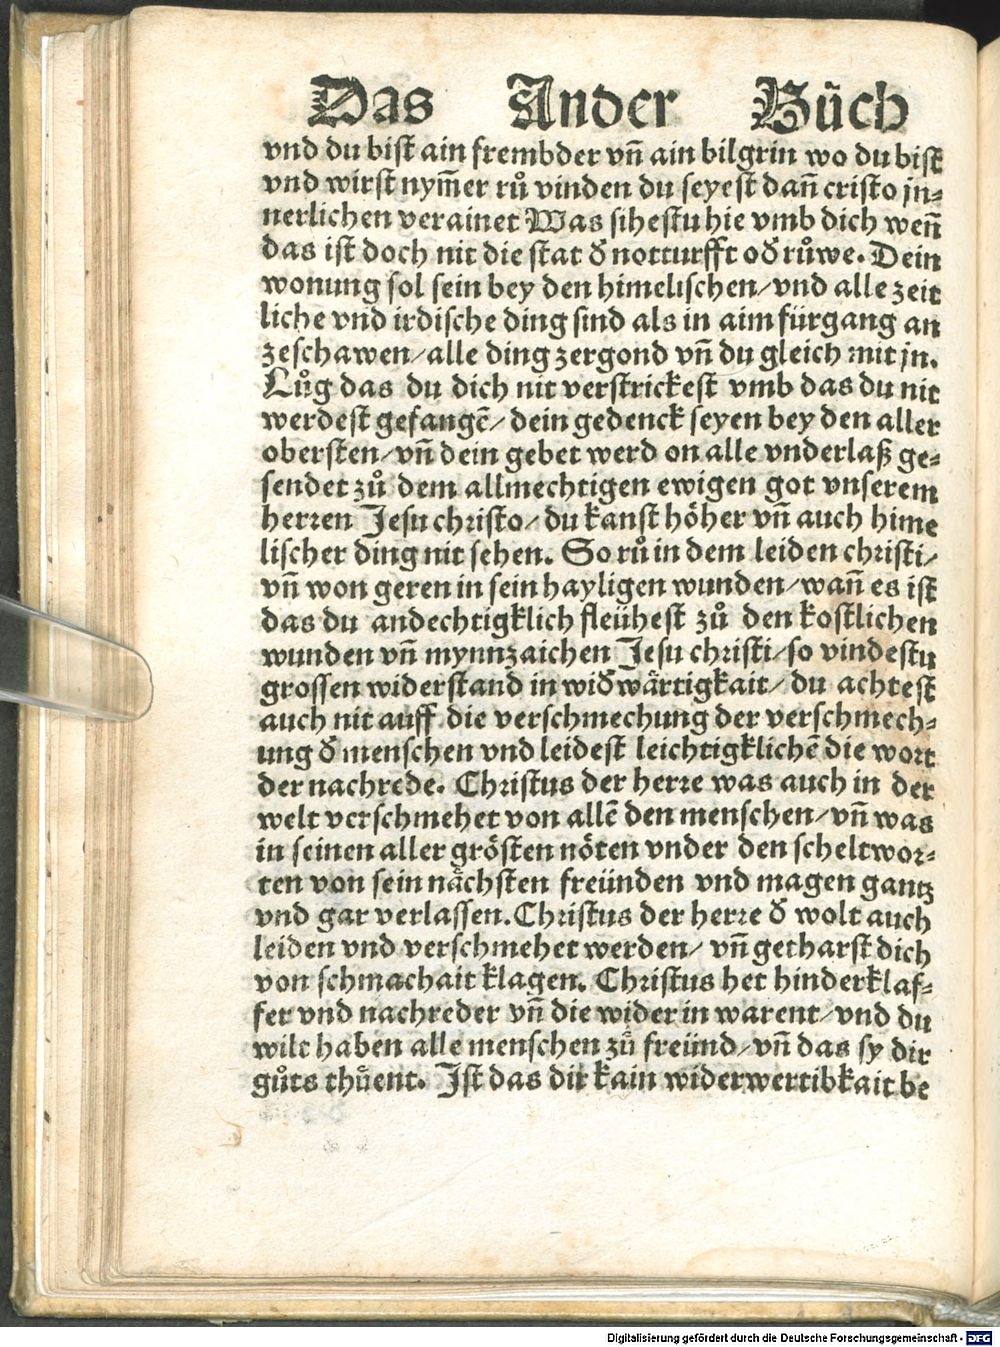 Das Ander Bůch
vnd du bist ain frembder vñ ain bilgrin wo du bist
vnd wirst nym̃er rů vinden du seyest dañ cristo jn⸗
nerlichen verainet Was sihestu hie vmb dich weñ
das ist doch nit die stat δ notturfft oδ růwe. Dein
wonung sol sein bey den himelischen/vnd alle zeit
liche vnd irdische ding sind als in aim fürgang an
zeschawen/alle ding zergond vñ du gleich mit jn.
Lůg das du dich nit verstrickest vmb das du nit
werdest gefangē/ dein gedenck seyen bey den aller
obersten/vñ dein gebet werd on alle vnderlaß ge⸗
sendet zů dem allmechtigen ewigen got vnserem
herren Jesu christo/ du kanst höher vñ auch hime
lischer ding nit sehen. So rů in dem leiden christi/
vñ won geren in sein hayligen wunden/wañ es ist
das du andechtigklich fleühest zů den kostlichen
wunden vñ mynnzaichen Jesu christi/so vindestu
grossen widerstand in wiδwärtigkait/ du achtest
auch nit auff die verschmechung der verschmech⸗
ung δ menschen vnd leidest leichtigklichē die wort
der nachrede. Christus der herre was auch in der
welt verschmehet von allē den menschen/vñ was
in seinen aller grösten nöten vnder den scheltwor⸗
ten von sein nächsten freünden vnd magen gantz
vnd gar verlassen. Christus der herre δ wolt auch
leiden vnd verschmehet werden/ vñ getharst dich
von schmachait klagen. Christus het hinderklaf⸗
fer vnd nachreder vñ die wider in warent/vnd du
wilt haben alle menschen zů freünd/vñ das sy dir
gůts thůent. Ist das dir kain widerwertibkait be
Digitalisierung gefördert durch die Deutsche Forschungsgemeinschaft - DFG